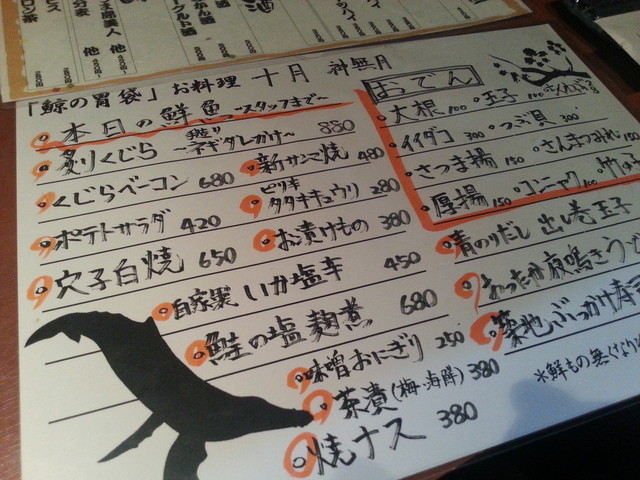 「鯨の胃袋」お料理 十月 神無月
本日の鮮魚 ~スタッフまで~
炙りくじら ~ネギダレがけ~ 880
くじらベーコン 680
新サンマ焼 480
ポテトサラダ 420
ピリ辛
タタキキュウリ 280
穴子白焼 650
お漬けもの 380
自家製 いか塩辛 450
鮭の塩麹煮 680
味噌おにぎり 250
茶漬(梅・海鮮) 380
焼ナス 380
おでん
大根 100 ・玉子 100
イイダコ 300 ・つぶ貝 300
さつま揚 150 ・さんまつみれ
厚揚 150 ・コンニャク 100
青のりだし 出し巻玉子
あったか 夜鳴きうど
築地ぶっかけ寿司
※鮮もの無くなり